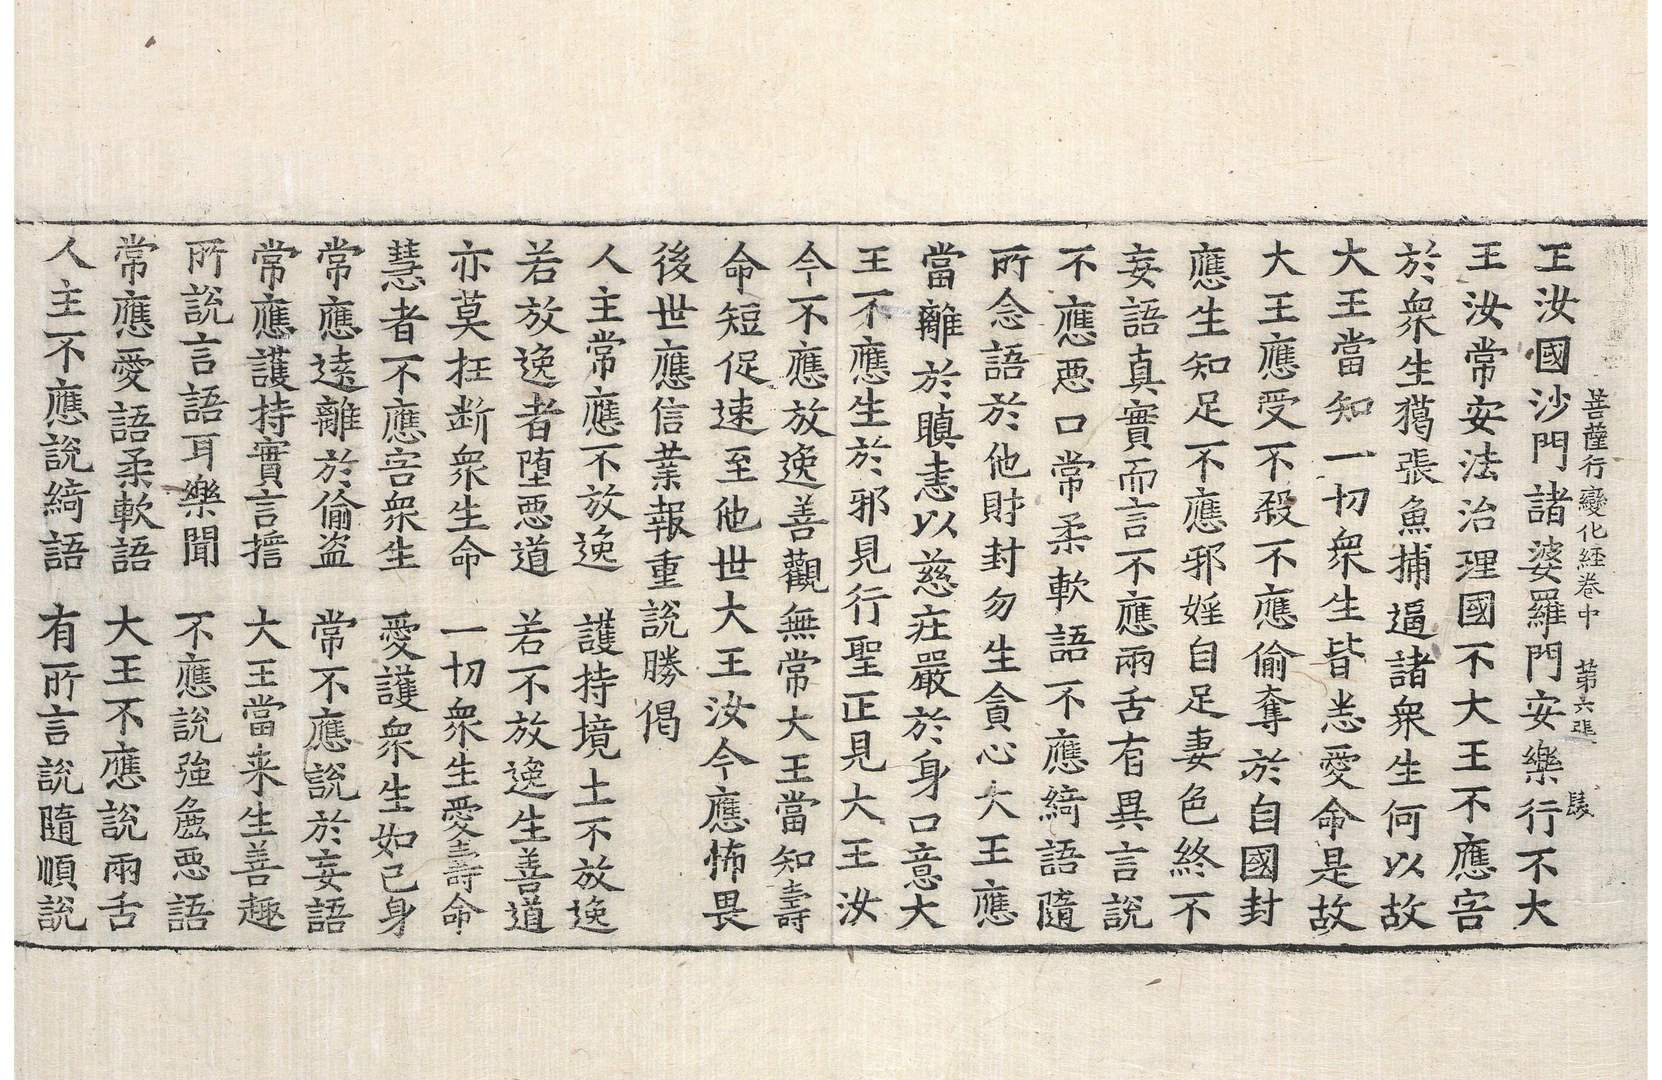 菩薩行變化経卷中 第六張
王汝國沙門諸婆羅門安樂行不大
王汝常安法治理國不大王不應害
於衆生獦張魚捕逼諸衆生何以故
大王當知一切衆生皆悉愛命是故
大王應受不殺不應偷奪於自國封
應生知足不應邪婬自足妻色終不
妄語真實而言不應兩舌有異言說
不應惡口常柔軟語不應綺語隨
所念語於他財封勿生貪心大王應
當離於瞋恚以慈莊嚴於身口意大
王不應生於邪見行聖正見大王汝
今不應放逸善觀無常大王當知壽
命短促速至他世大王汝今應怖畏
後世應信業報重說勝偈
人主常應不放逸 護持境土不放逸
若放逸者墮惡道 若不放逸生善道
亦莫枉断衆生命 一切衆生愛壽命
慧者不應害衆生 愛護衆生如己身
常應遠離於偷盜 常不應說於妄語
常應護持實言擔 大王當来生善趣
所說言語耳樂聞 不應說強麁惡語
常應愛語柔軟語 大王不應說兩舌
人主不應說綺語 有所言說隨順說